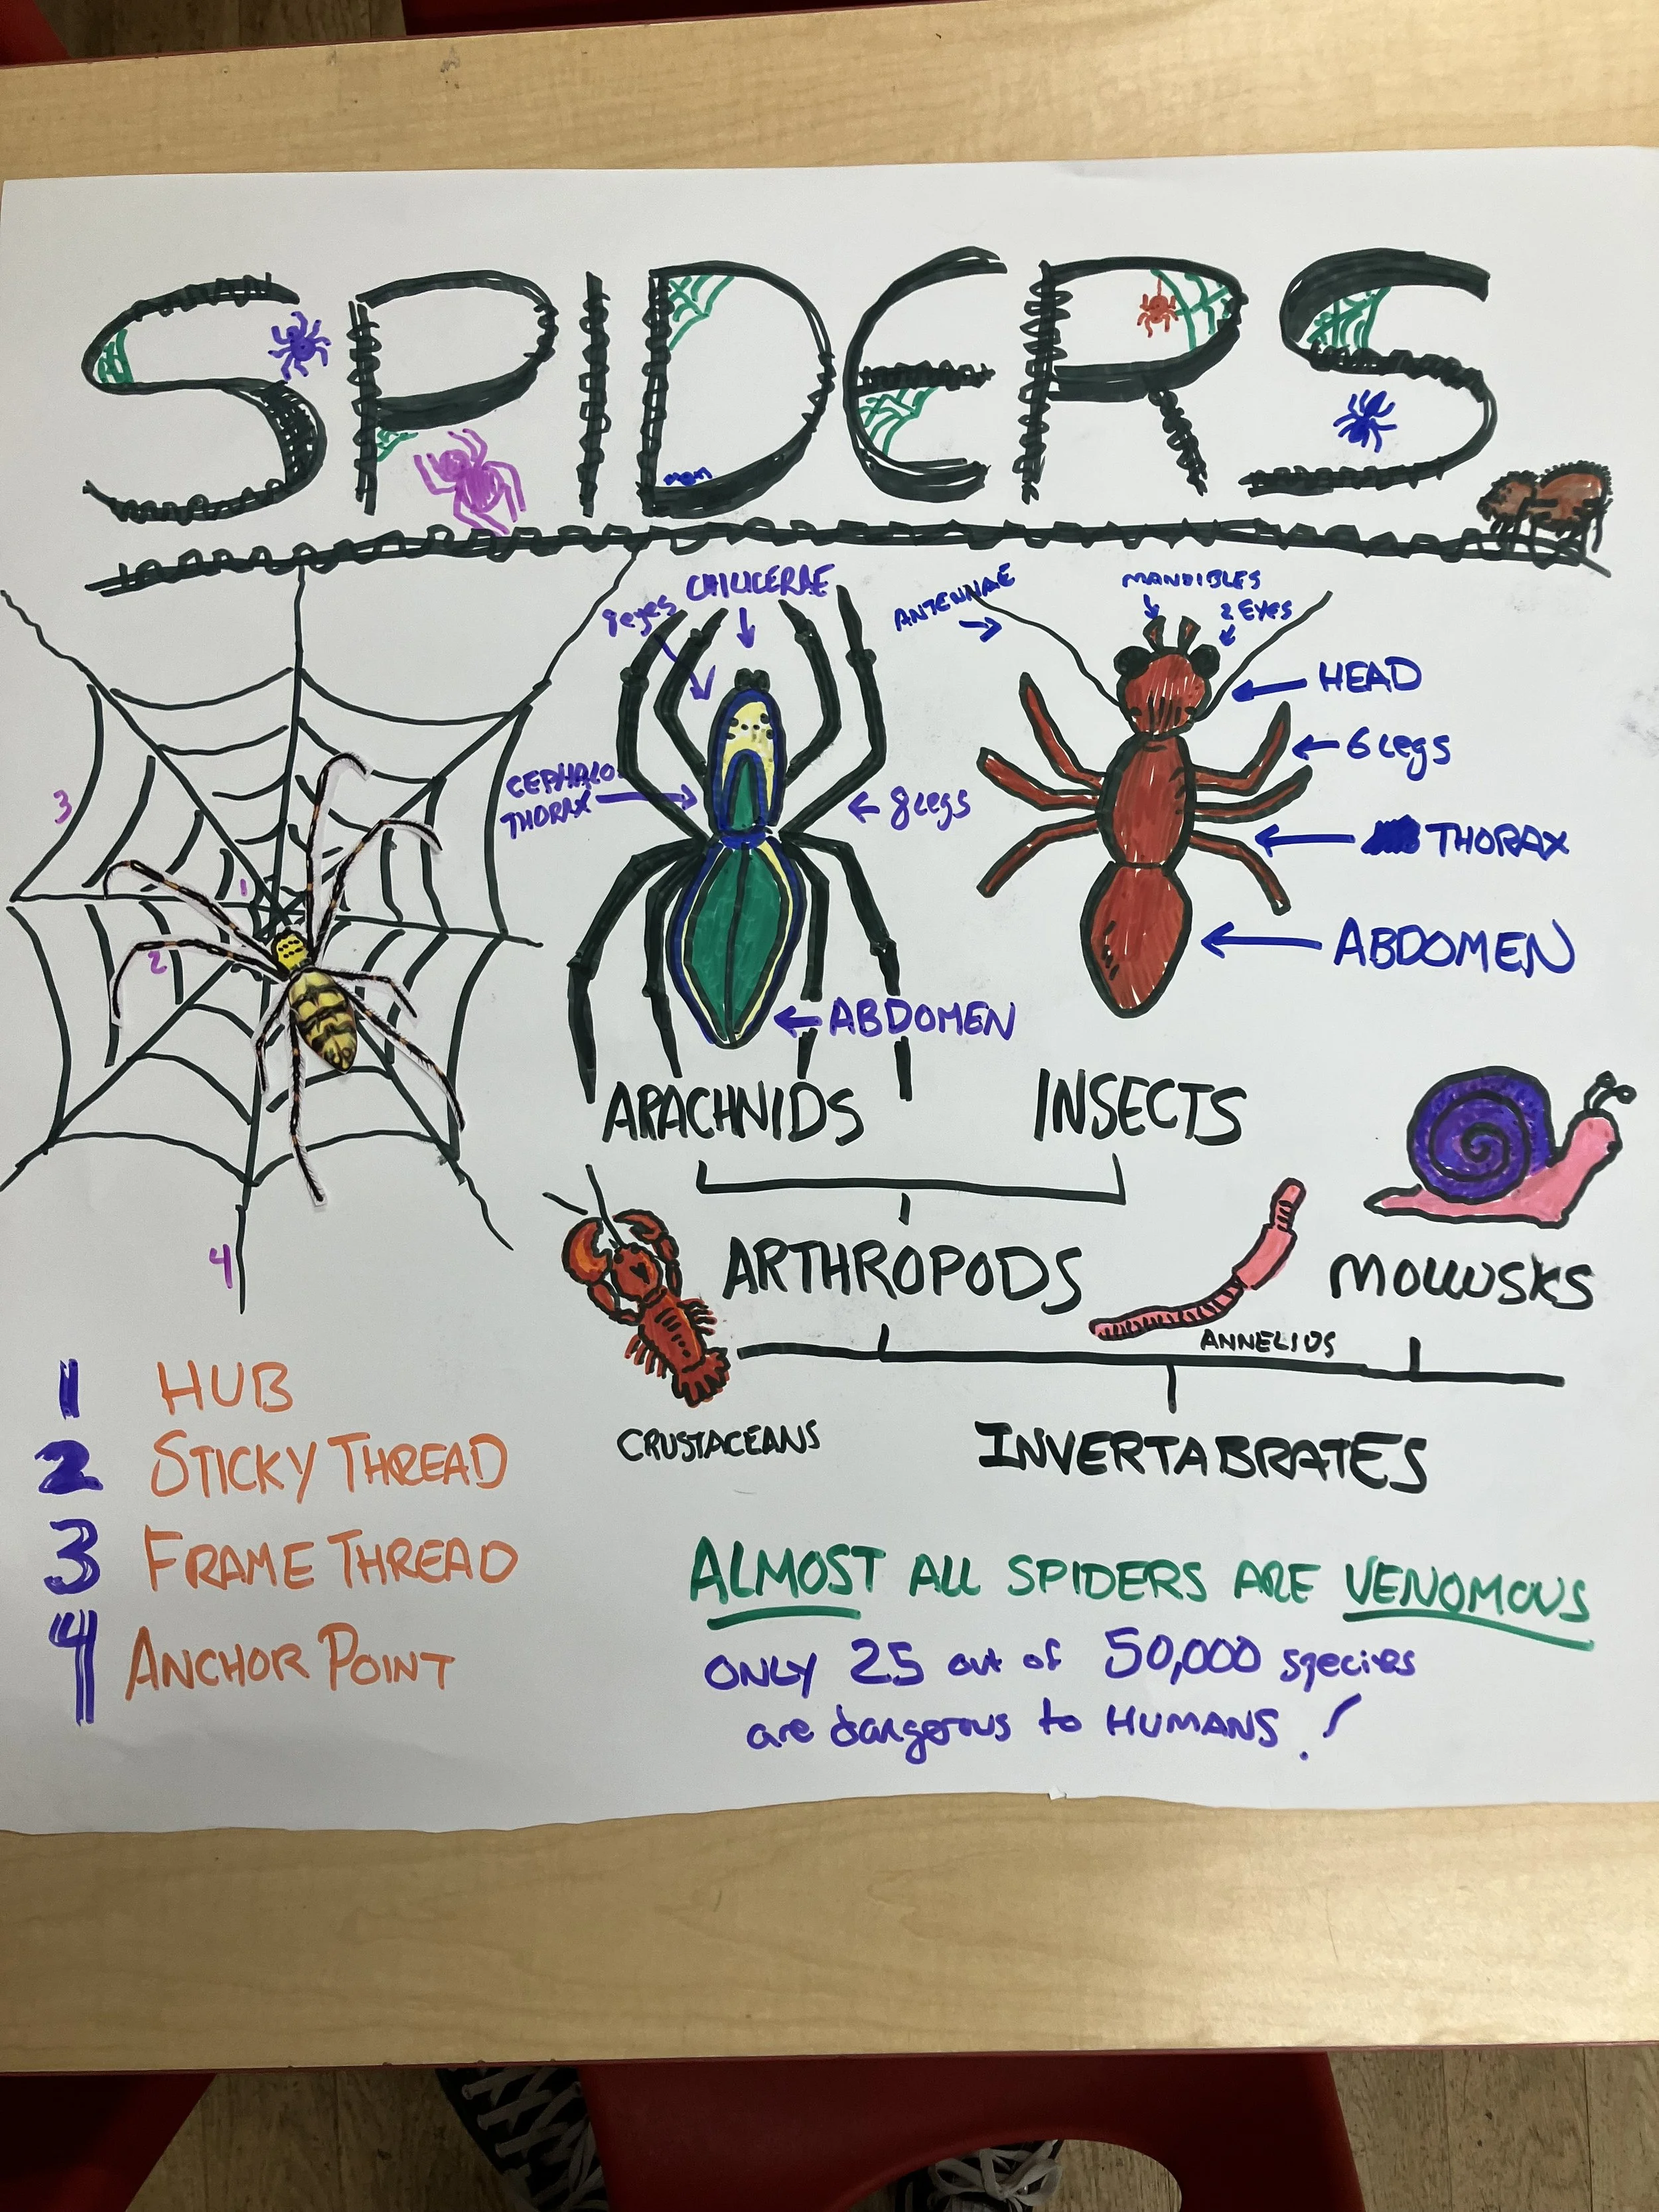 SPIDERS
mom
8 eyes
CHILICERAE
CEPHALO
THORAX
8 legs
ABDOMEN
ANTENNAE
MANDIBLES
2 EYES
HEAD
6 legs
THORAX
ABDOMEN
3
1
2
4
ARACHNIDS
INSECTS
ARTHROPODS
MOLLUSKS
ANNELIDS
CRUSTACEANS
INVERTABRATES
1 HUB
2 STICKY THREAD
3 FRAME THREAD
4 ANCHOR POINT
ALMOST ALL SPIDERS ARE VENOMOUS
ONLY 25 out of 50,000 species
are dangerous to HUMANS!